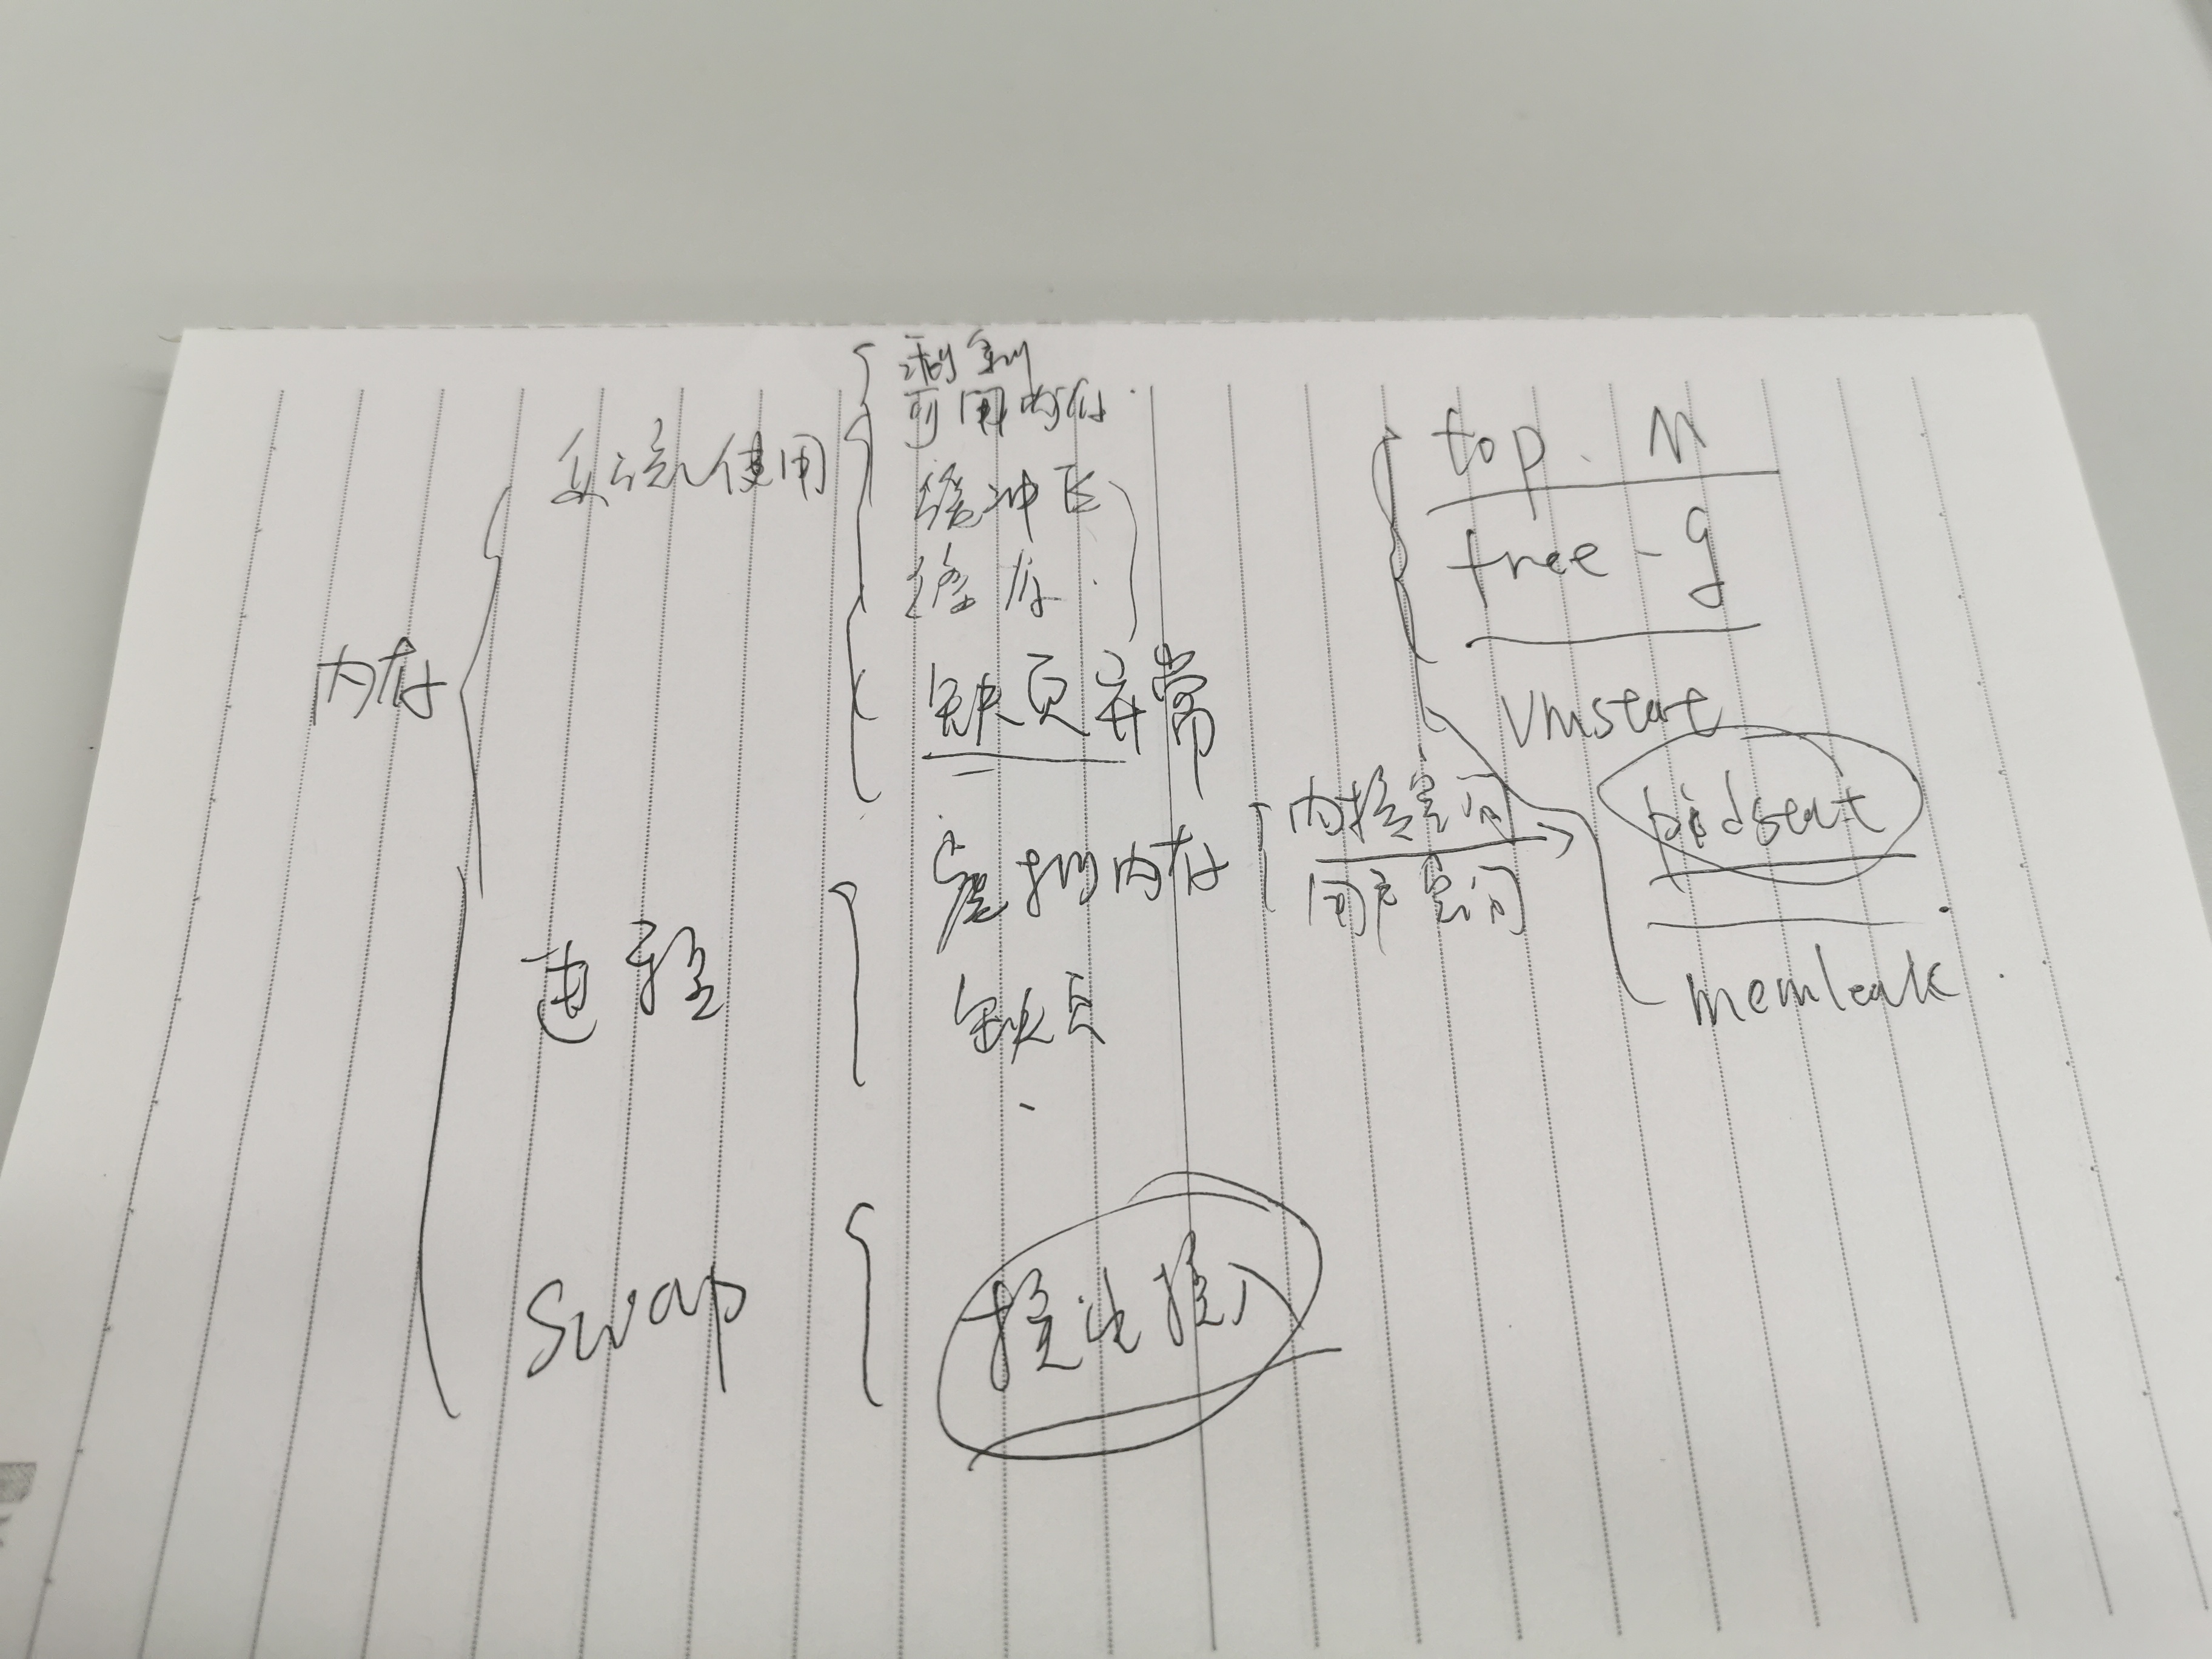 内存
系统使用
剩余
可用内存
缓冲区
缓存
缺页异常
进程
虚拟内存
内核空间
用户空间
缺页
swap
换出换入
top. M
free -g
vmstat
memleak